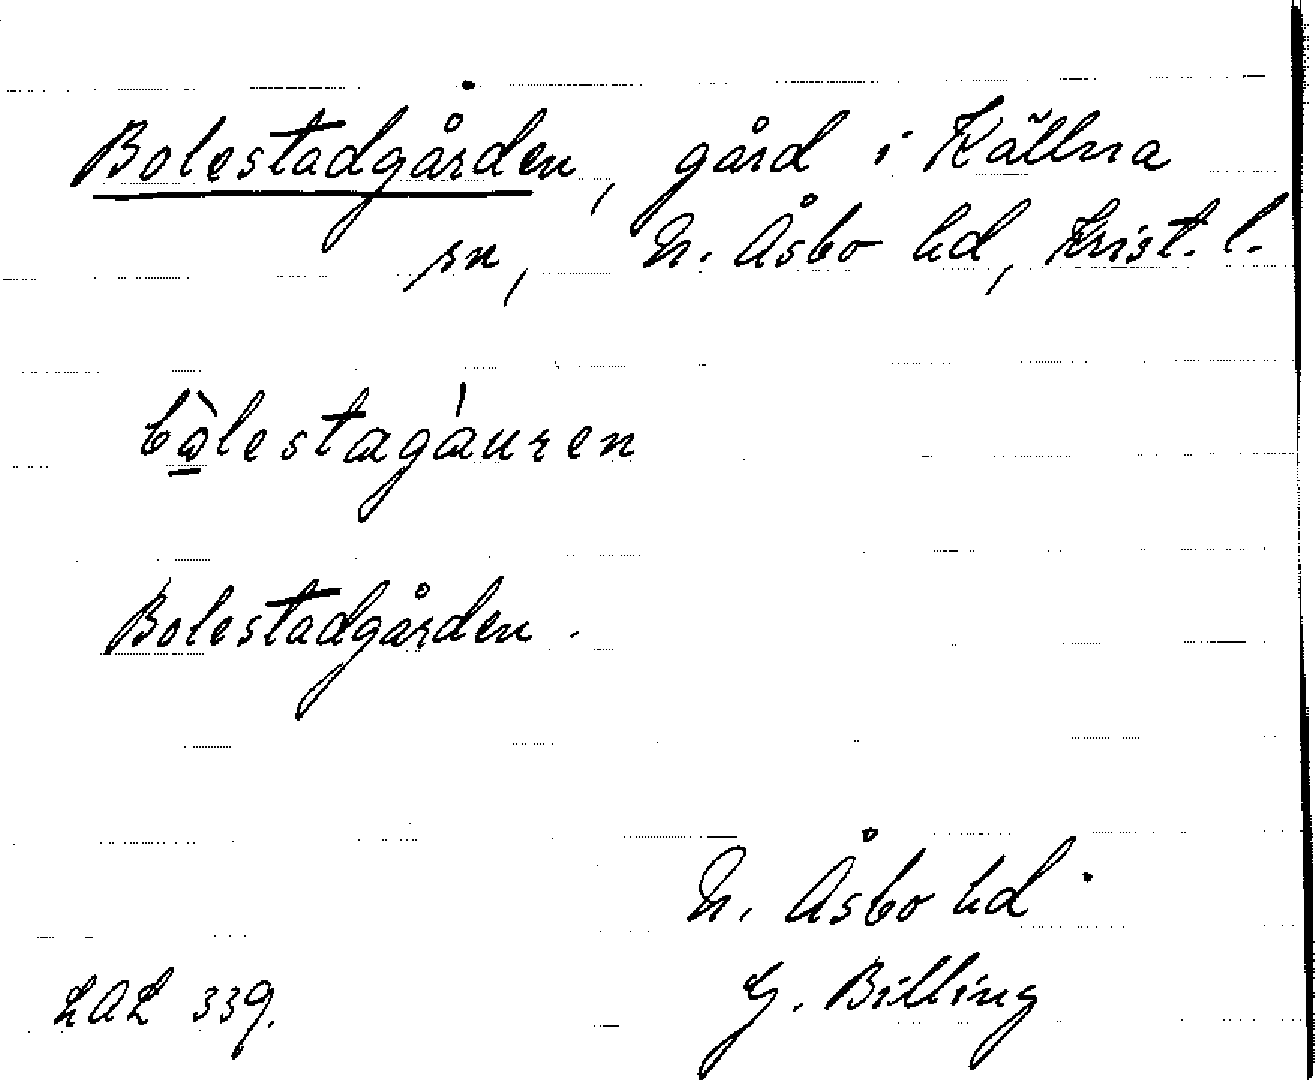 Bolestadgården, gård i Källna
sn, N. Åsbo hd, Krist. l.
bòlestagáuren
Bolestadgården.
N. Åsbo hd
G. Billing
LAL 339.